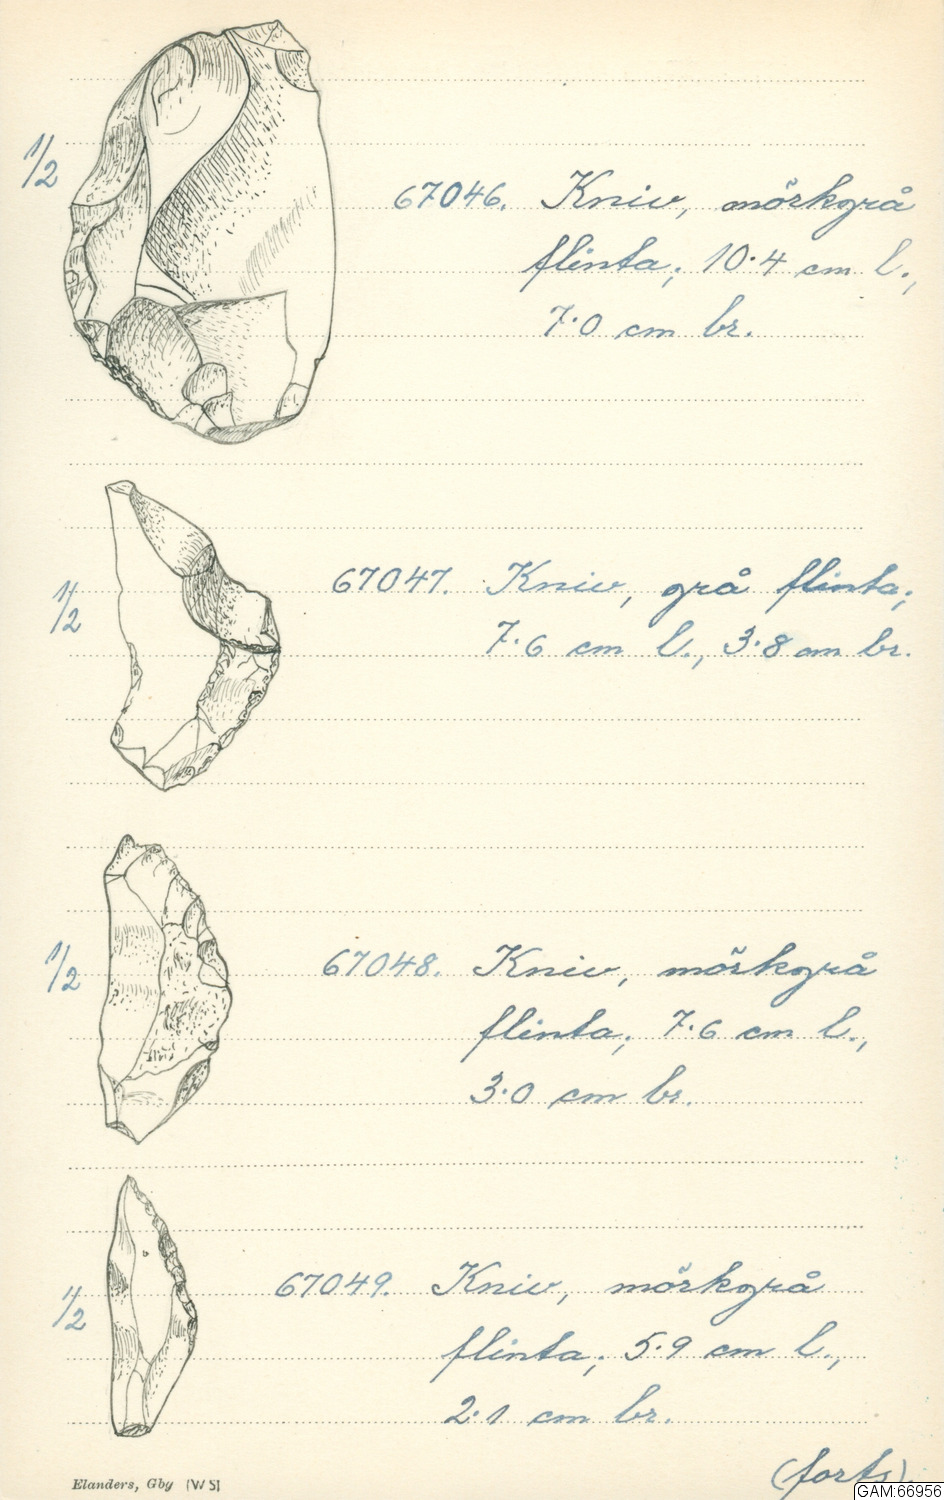 1/2
67046. Kniv, mörkgrå
flinta; 10.4 cm l.,
7.0 cm br.
1/2
67047. Kniv, grå flinta;
7.6 cm l., 3.8 cm br.
1/2
67048. Kniv, mörkgrå
flinta; 7.6 cm l.,
3.0 cm br.
1/2
67049. Kniv, mörkgrå
flinta; 5.9 cm l.,
2.1 cm br.
(forts).
Elanders, Gbg (WS)
GAM:66956